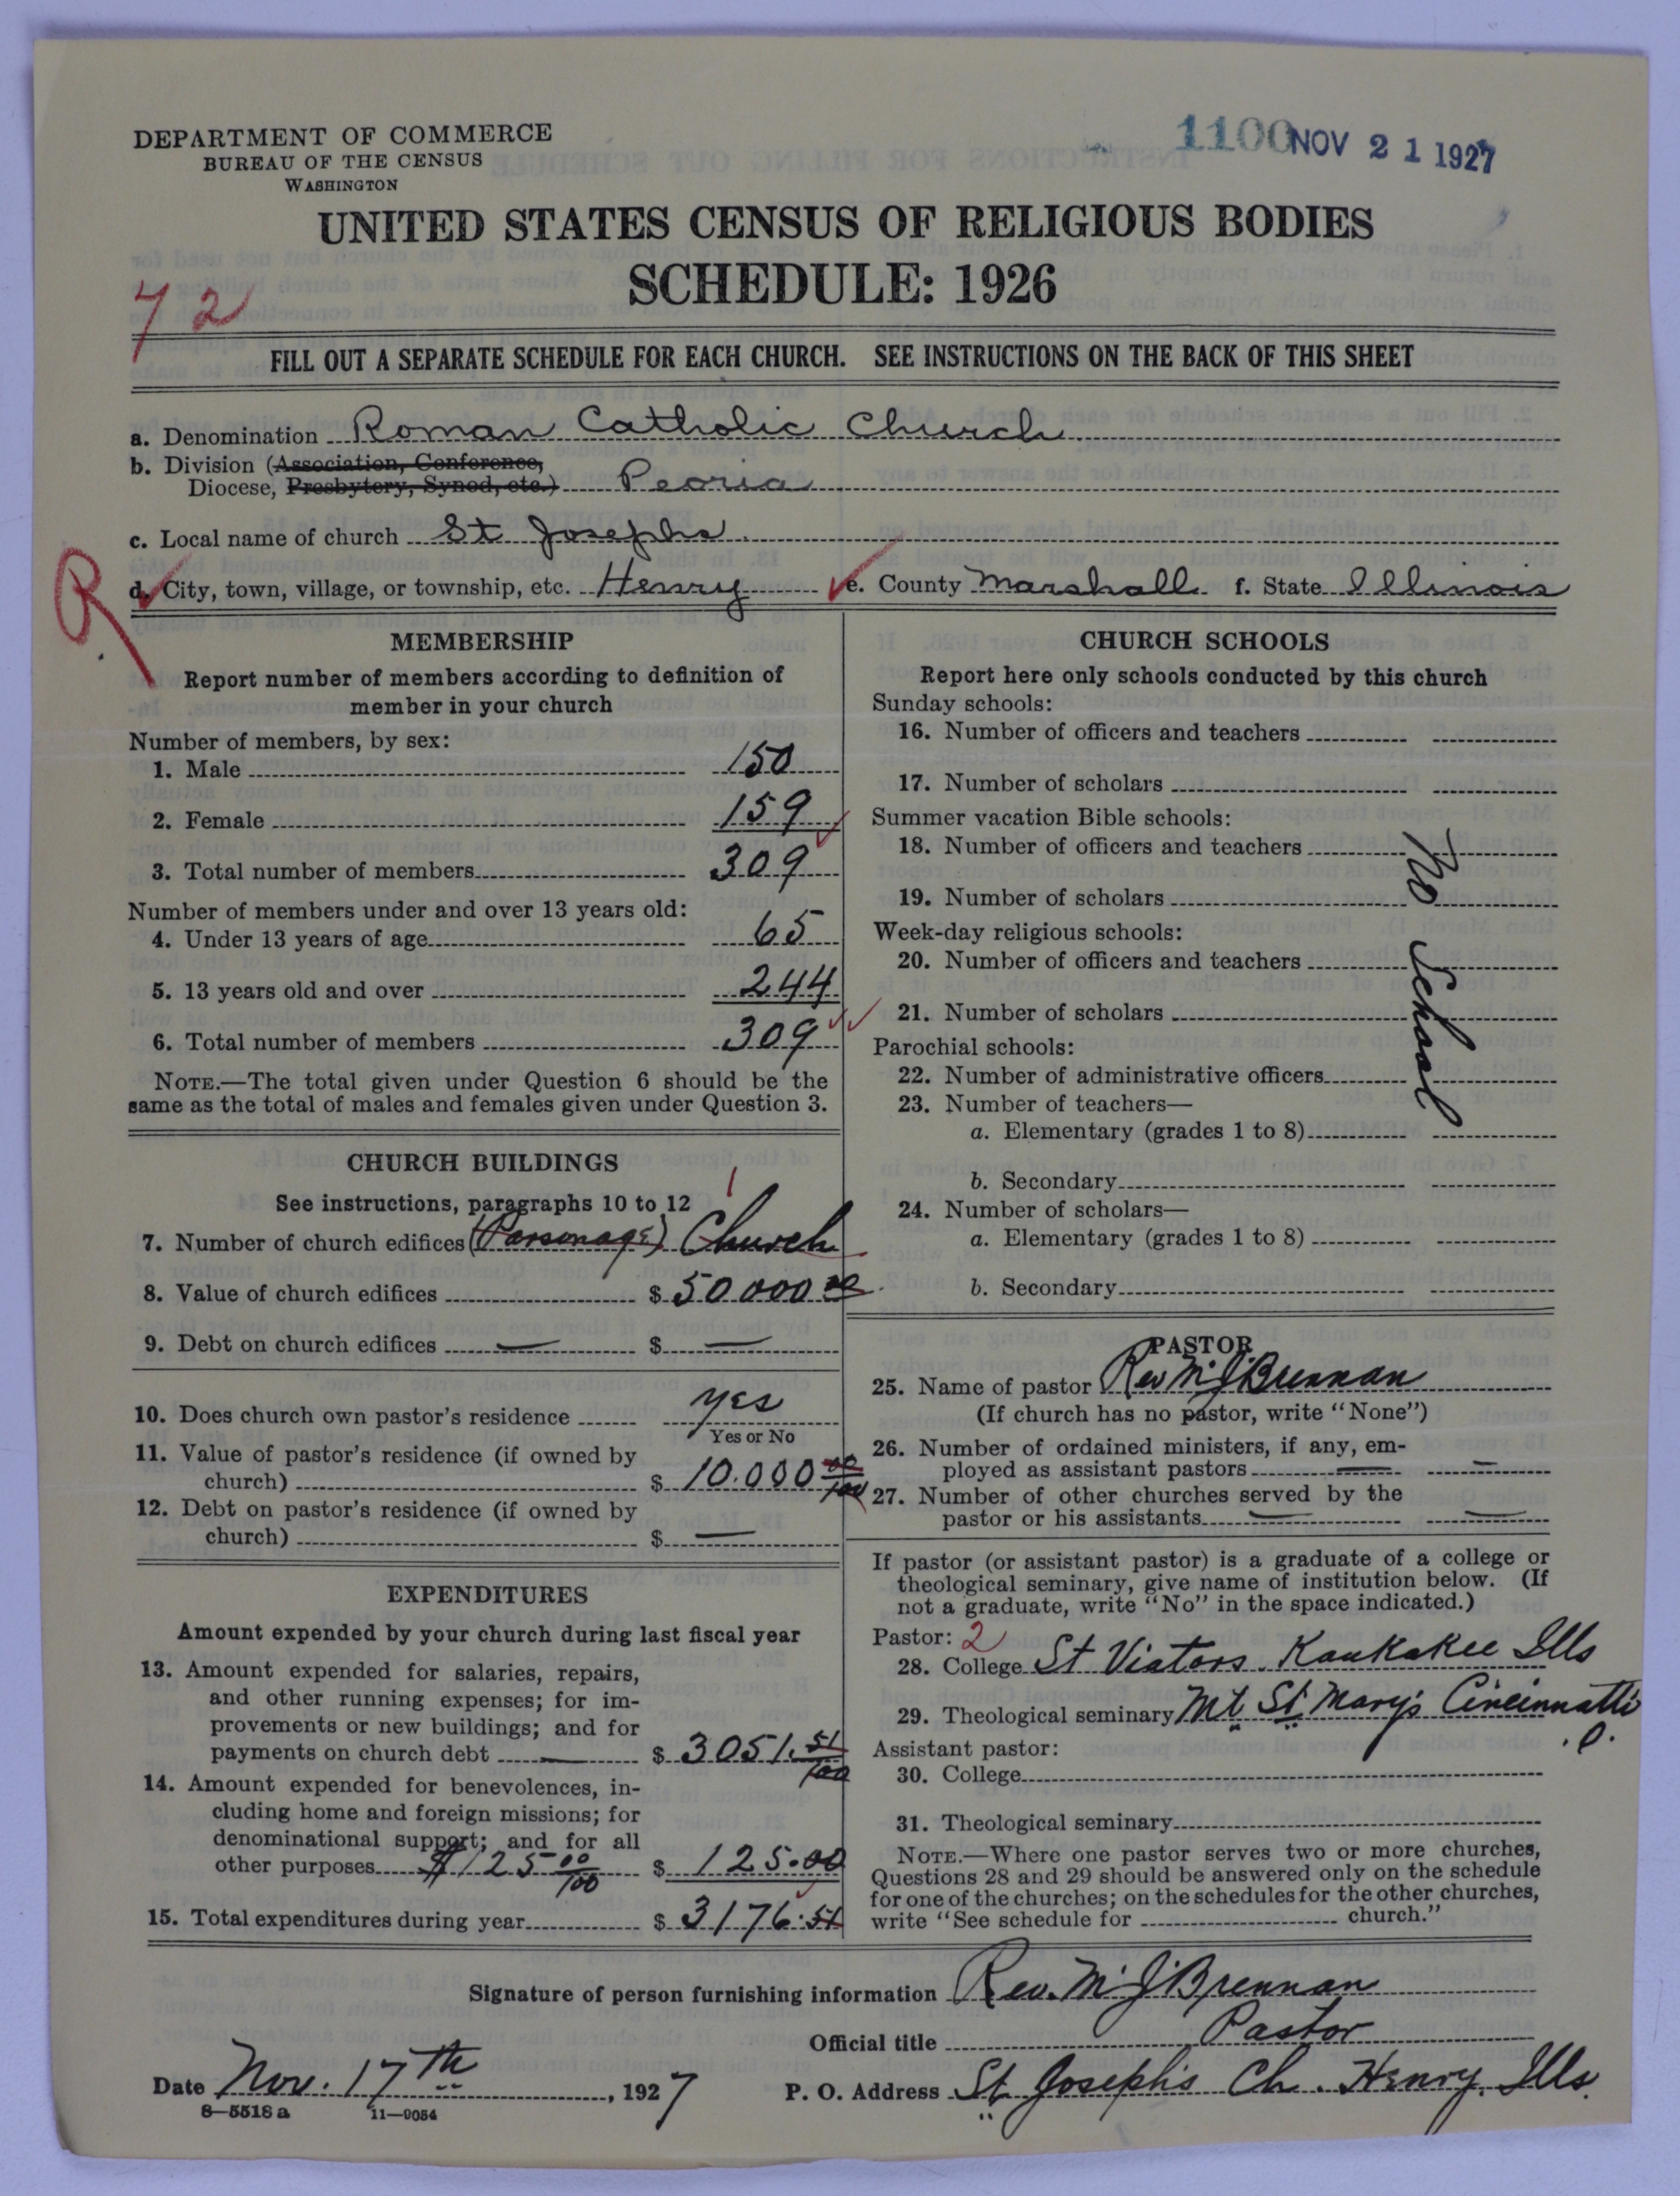 DEPARTMENT OF COMMERCE
BUREAU OF THE CENSUS
WASHINGTON
1100 NOV 21 1927
UNITED STATES CENSUS OF RELIGIOUS BODIES
SCHEDULE: 1926
72
FILL OUT A SEPARATE SCHEDULE FOR EACH CHURCH. SEE INSTRUCTIONS ON THE BACK OF THIS SHEET
a. Denomination Roman Catholic Church
b. Division (Association, Conference,
Diocese, Presbytery, Synod, etc.) Peoria
c. Local name of church St Josephs
R
d. City, town, village, or township, etc. Henry e. County Marshall f. State Illinois
MEMBERSHIP
Report number of members according to definition of
member in your church
Number of members, by sex:
1. Male 150
2. Female 159
3. Total number of members 309
Number of members under and over 13 years old:
4. Under 13 years of age 65
5. 13 years old and over 244
6. Total number of members 309
NOTE.—The total given under Question 6 should be the
same as the total of males and females given under Question 3.
CHURCH BUILDINGS
See instructions, paragraphs 10 to 12
1
7. Number of church edifices (Parsonage) Church
8. Value of church edifices $ 50000 00
9. Debt on church edifices — $ —
10. Does church own pastor's residence yes
Yes or No
11. Value of pastor's residence (if owned by
church) $ 10.000 00/100
12. Debt on pastor's residence (if owned by
church) $ —
EXPENDITURES
Amount expended by your church during last fiscal year
13. Amount expended for salaries, repairs,
and other running expenses; for im-
provements or new buildings; and for
payments on church debt — $ 3051.51/100
14. Amount expended for benevolences, in-
cluding home and foreign missions; for
denominational support; and for all
other purposes $125 00/100 $ 125.00
15. Total expenditures during year $ 3176.51
CHURCH SCHOOLS
Report here only schools conducted by this church
Sunday schools:
16. Number of officers and teachers
17. Number of scholars
Summer vacation Bible schools:
18. Number of officers and teachers
19. Number of scholars
Week-day religious schools:
20. Number of officers and teachers
21. Number of scholars
Parochial schools:
22. Number of administrative officers
23. Number of teachers—
a. Elementary (grades 1 to 8)
b. Secondary
24. Number of scholars—
a. Elementary (grades 1 to 8)
b. Secondary
No School
PASTOR
25. Name of pastor Rev M J Brennan
(If church has no pastor, write "None")
26. Number of ordained ministers, if any, em-
ployed as assistant pastors — —
27. Number of other churches served by the
pastor or his assistants — —
If pastor (or assistant pastor) is a graduate of a college or
theological seminary, give name of institution below. (If
not a graduate, write "No" in the space indicated.)
Pastor: 2
28. College St Viators Kankakee Ills
29. Theological seminary Mt St Mary's Cincinnatti
O.
Assistant pastor:
30. College
31. Theological seminary
NOTE.—Where one pastor serves two or more churches,
Questions 28 and 29 should be answered only on the schedule
for one of the churches; on the schedules for the other churches,
write "See schedule for church."
Signature of person furnishing information Rev. M J Brennan
Official title Pastor
Date Nov. 17th, 1927 P. O. Address St Joseph's Ch. Henry, Ills.
8—5518 a 11—9054